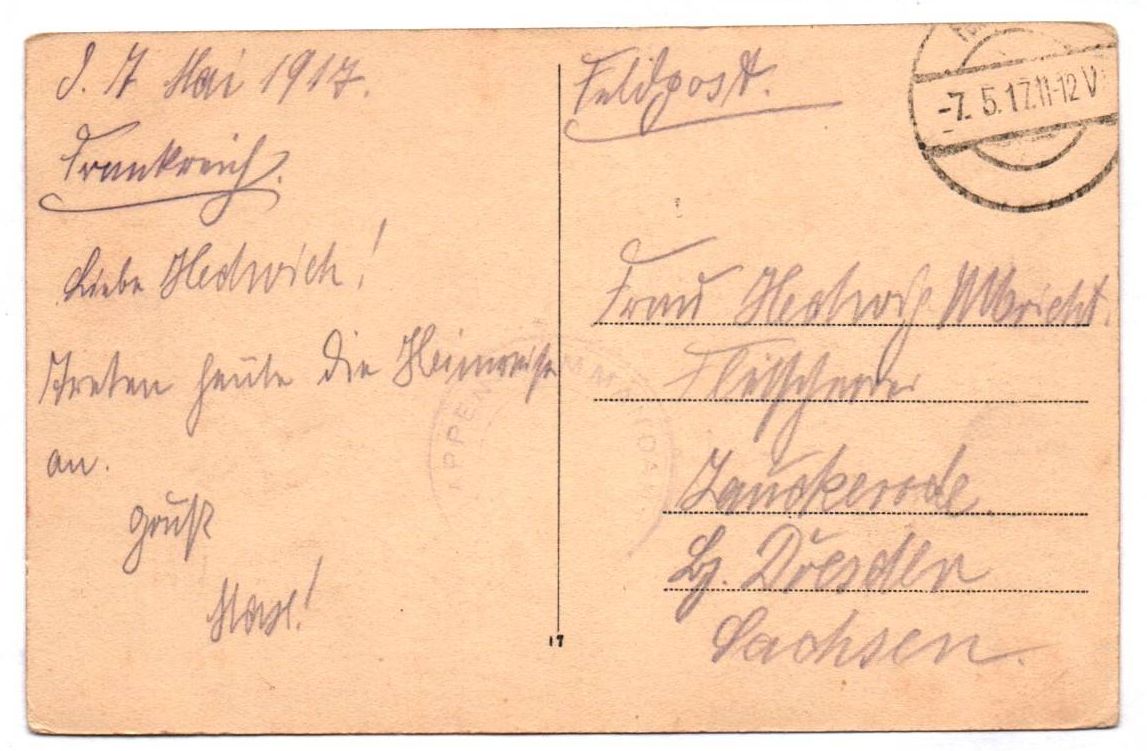 d. 7 Mai 1917.
Frankreich.
Liebe Hedwich!
Treten heute die Heimreise
an.
Gruß
Max!
Feldpost.
-7. 5. 17. 11-12 V
Frau Hedwich Ulbricht.
Fleischerei
Zauckerode.
Bz. Dresden
Sachsen.
17